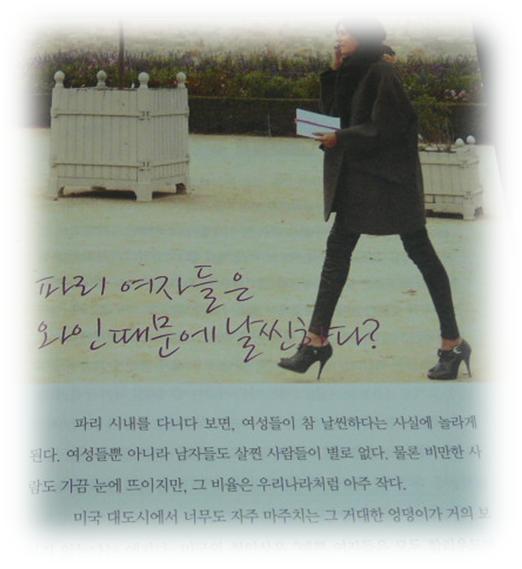 파리 여자들은
와인때문에 날씬하다?
파리 시내를 다니다 보면, 여성들이 참 날씬하다는 사실에 놀라게
된다. 여성들뿐 아니라 남자들도 살찐 사람들이 별로 없다. 물론 비만한 사
람도 가끔 눈에 뜨이지만, 그 비율은 우리나라처럼 아주 작다.
미국 대도시에서 너무도 자주 마주치는 그 거대한 엉덩이가 거의 보